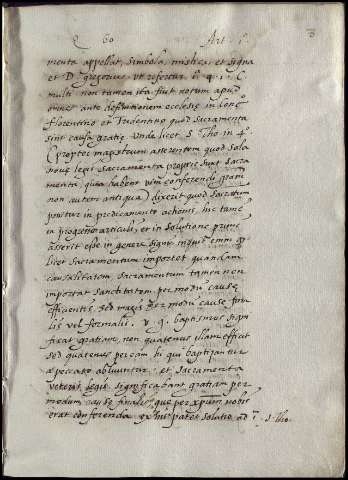 Q 60 Art. 1.
menta appellat, simbola, mistica, et signa
et D. gregorius, vt refertur
multi non tamen ita fuit notum apud
omnes ante definitionem ecclesiæ in conc.
florentino et Tridentino quod sacramenta
sint causa gratiæ. Unde licet S. Tho. in 4º
(propter magistrum asserentem quod sola
nouæ legis sacramenta proprie sunt sacra
menta, quia habent vim conferendi gratiam
non autem antiqua) dixerit quod sacramentum
ponitur in predicamento actionis, hic tamen
in progressu articuli, et in solutione primi
asserit esse in genere signi
licet sacramentum importet quandam
causalitatem. sacramentum tamen non
importat sanctitatem per modum causæ
efficientis sed magis per modum causæ fina
lis vel formalis. v. g. baptismus signi
ficat gratiam, non quatenus illam efficit
sed quatenus per eam hi qui baptizantur
a peccato abluuntur. et sacramenta
veteris legis significabant gratiam per
modum causæ finalis, quæ per xpum nobis
erat conferenda. ex his patet solutio ad 1. S. Tho.